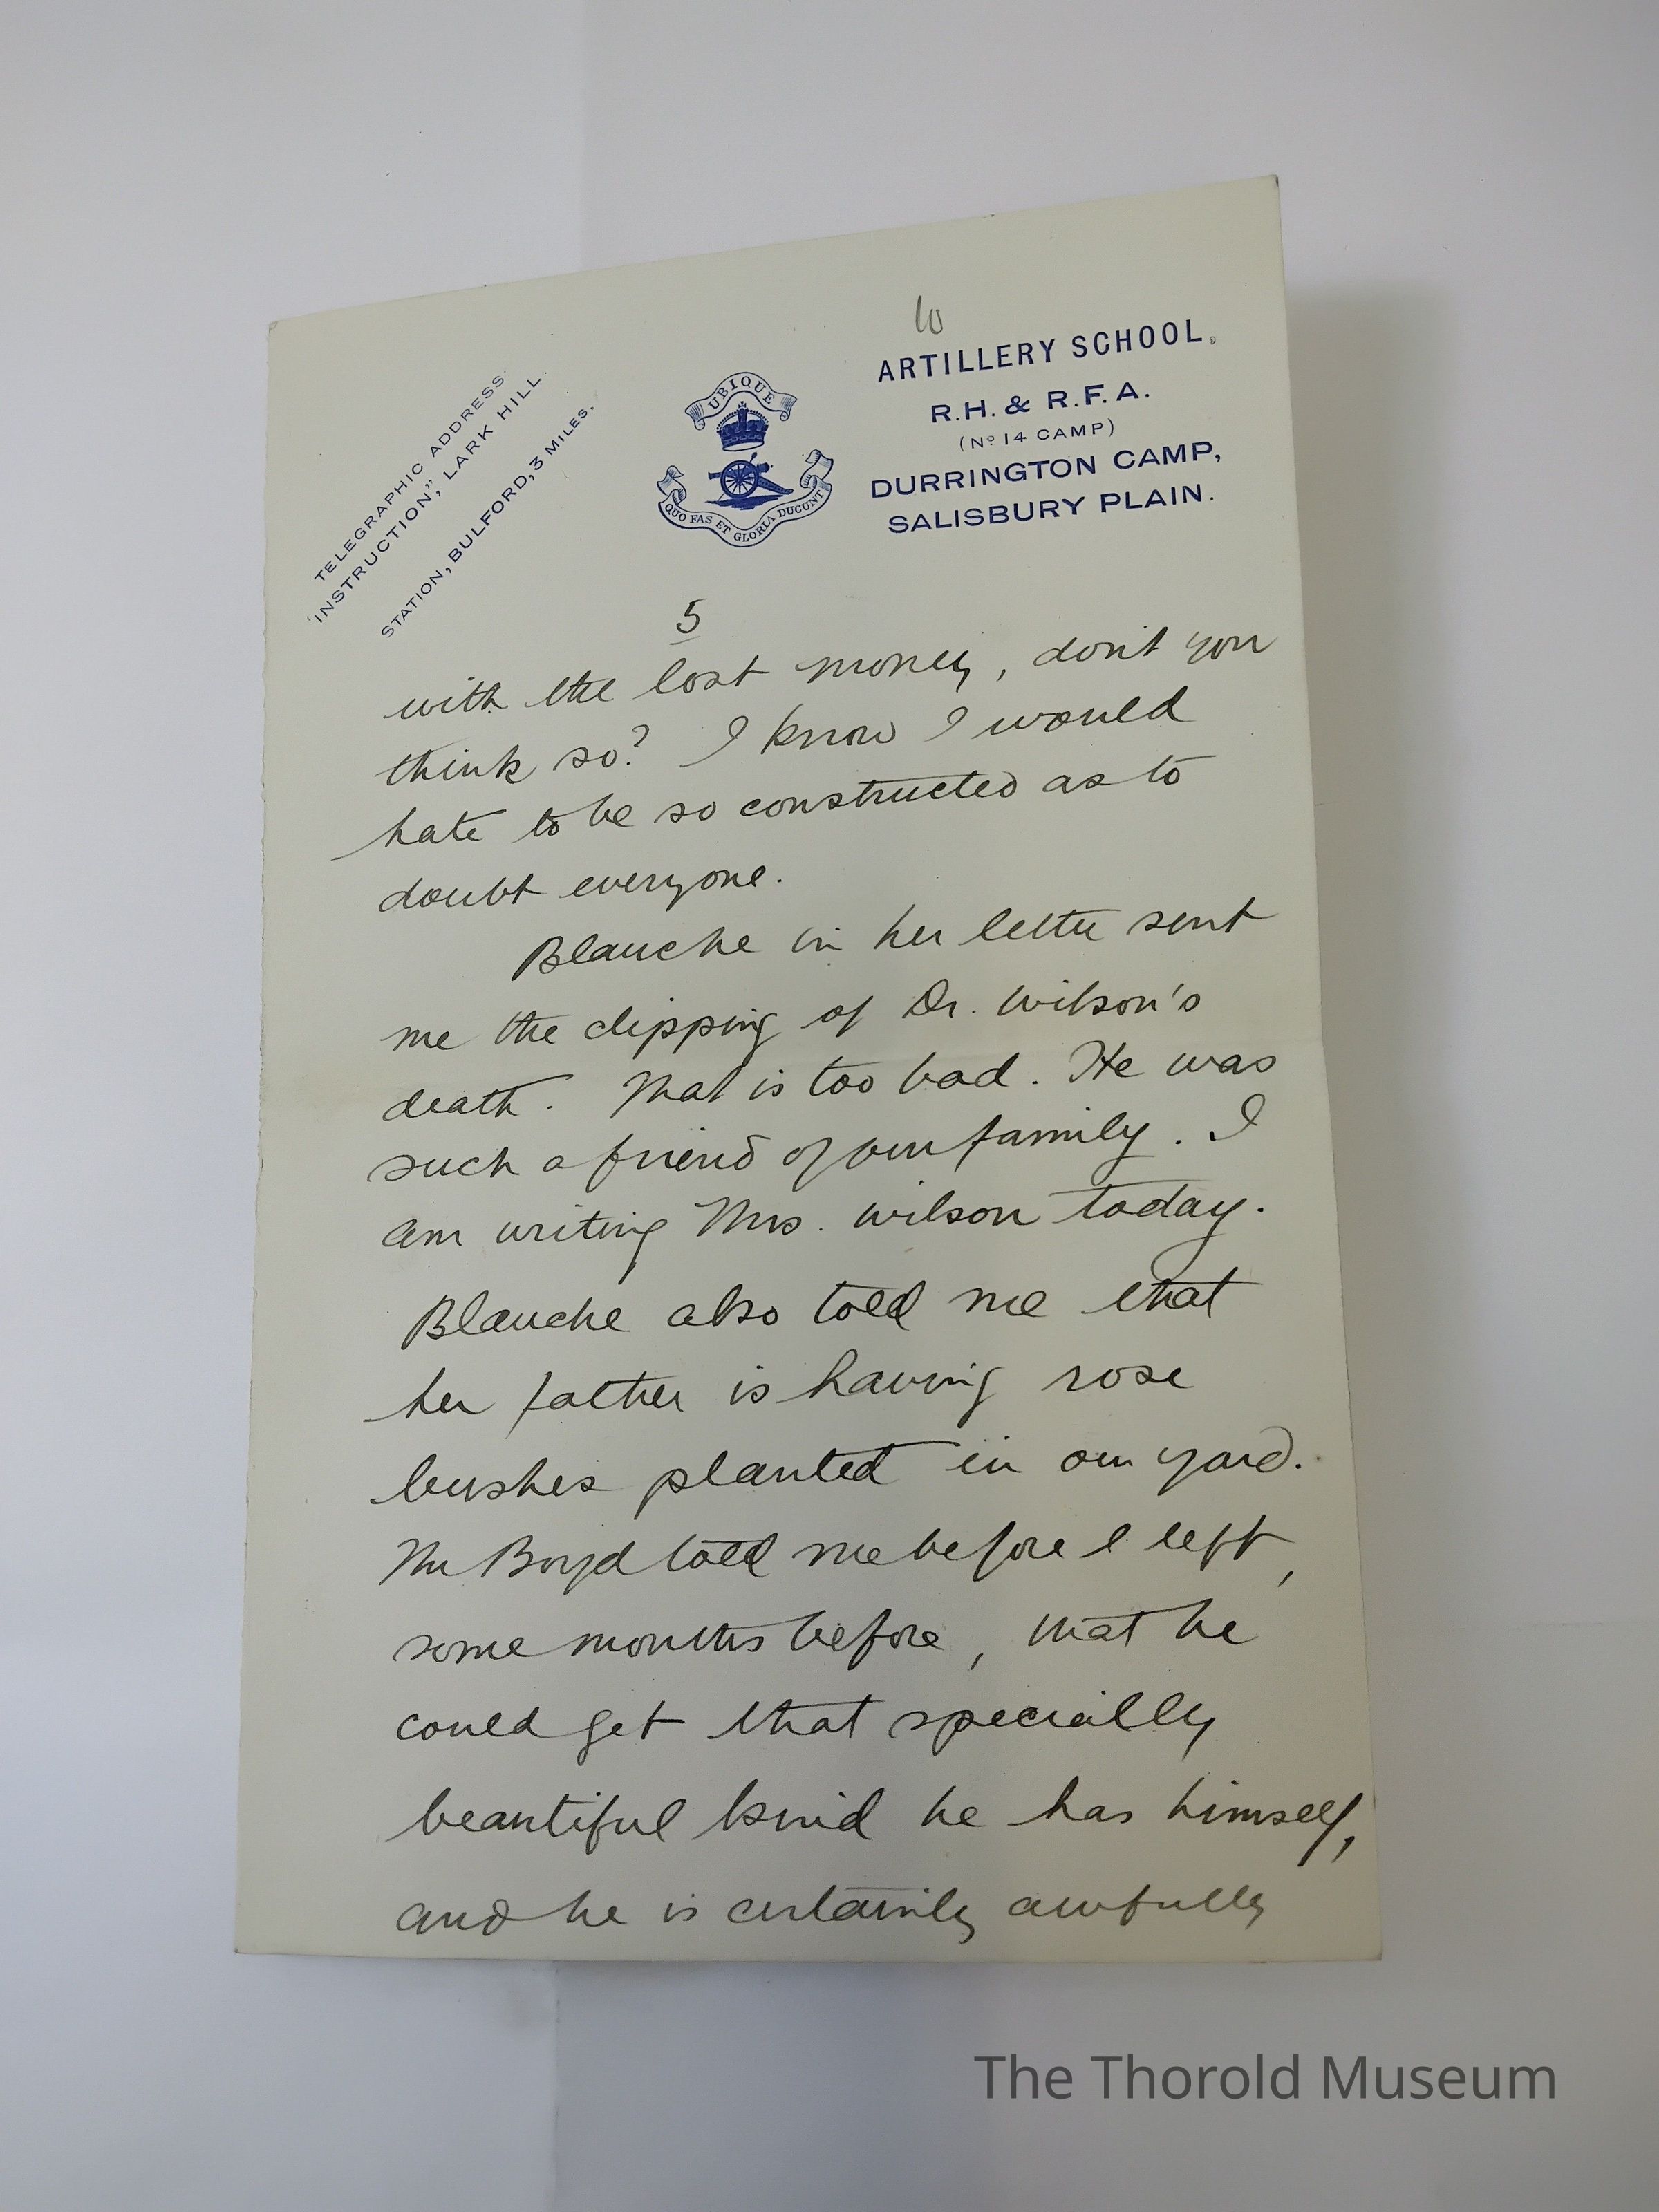 10
ARTILLERY SCHOOL,
R.H. & R.F.A.
(No 14 CAMP)
DURRINGTON CAMP,
SALISBURY PLAIN.
TELEGRAPHIC ADDRESS
"INSTRUCTION," LARK HILL.
STATION, BULFORD, 3 MILES.
UBIQUE
QUO FAS ET GLORIA DUCUNT
5
with the lost money, don't you
think so? I know I would
hate to be so constructed as to
doubt everyone.
Blanche in her letter sent
me the clipping of Dr. Wilson's
death. That is too bad. He was
such a friend of our family. I
am writing Mrs. Wilson today.
Blanche also told me that
her father is having rose
bushes planted in our yard.
Mr Boyd told me before I left,
some months before, that he
could get that specially
beautiful kind he has himself,
and he is certainly awfully
The Thorold Museum